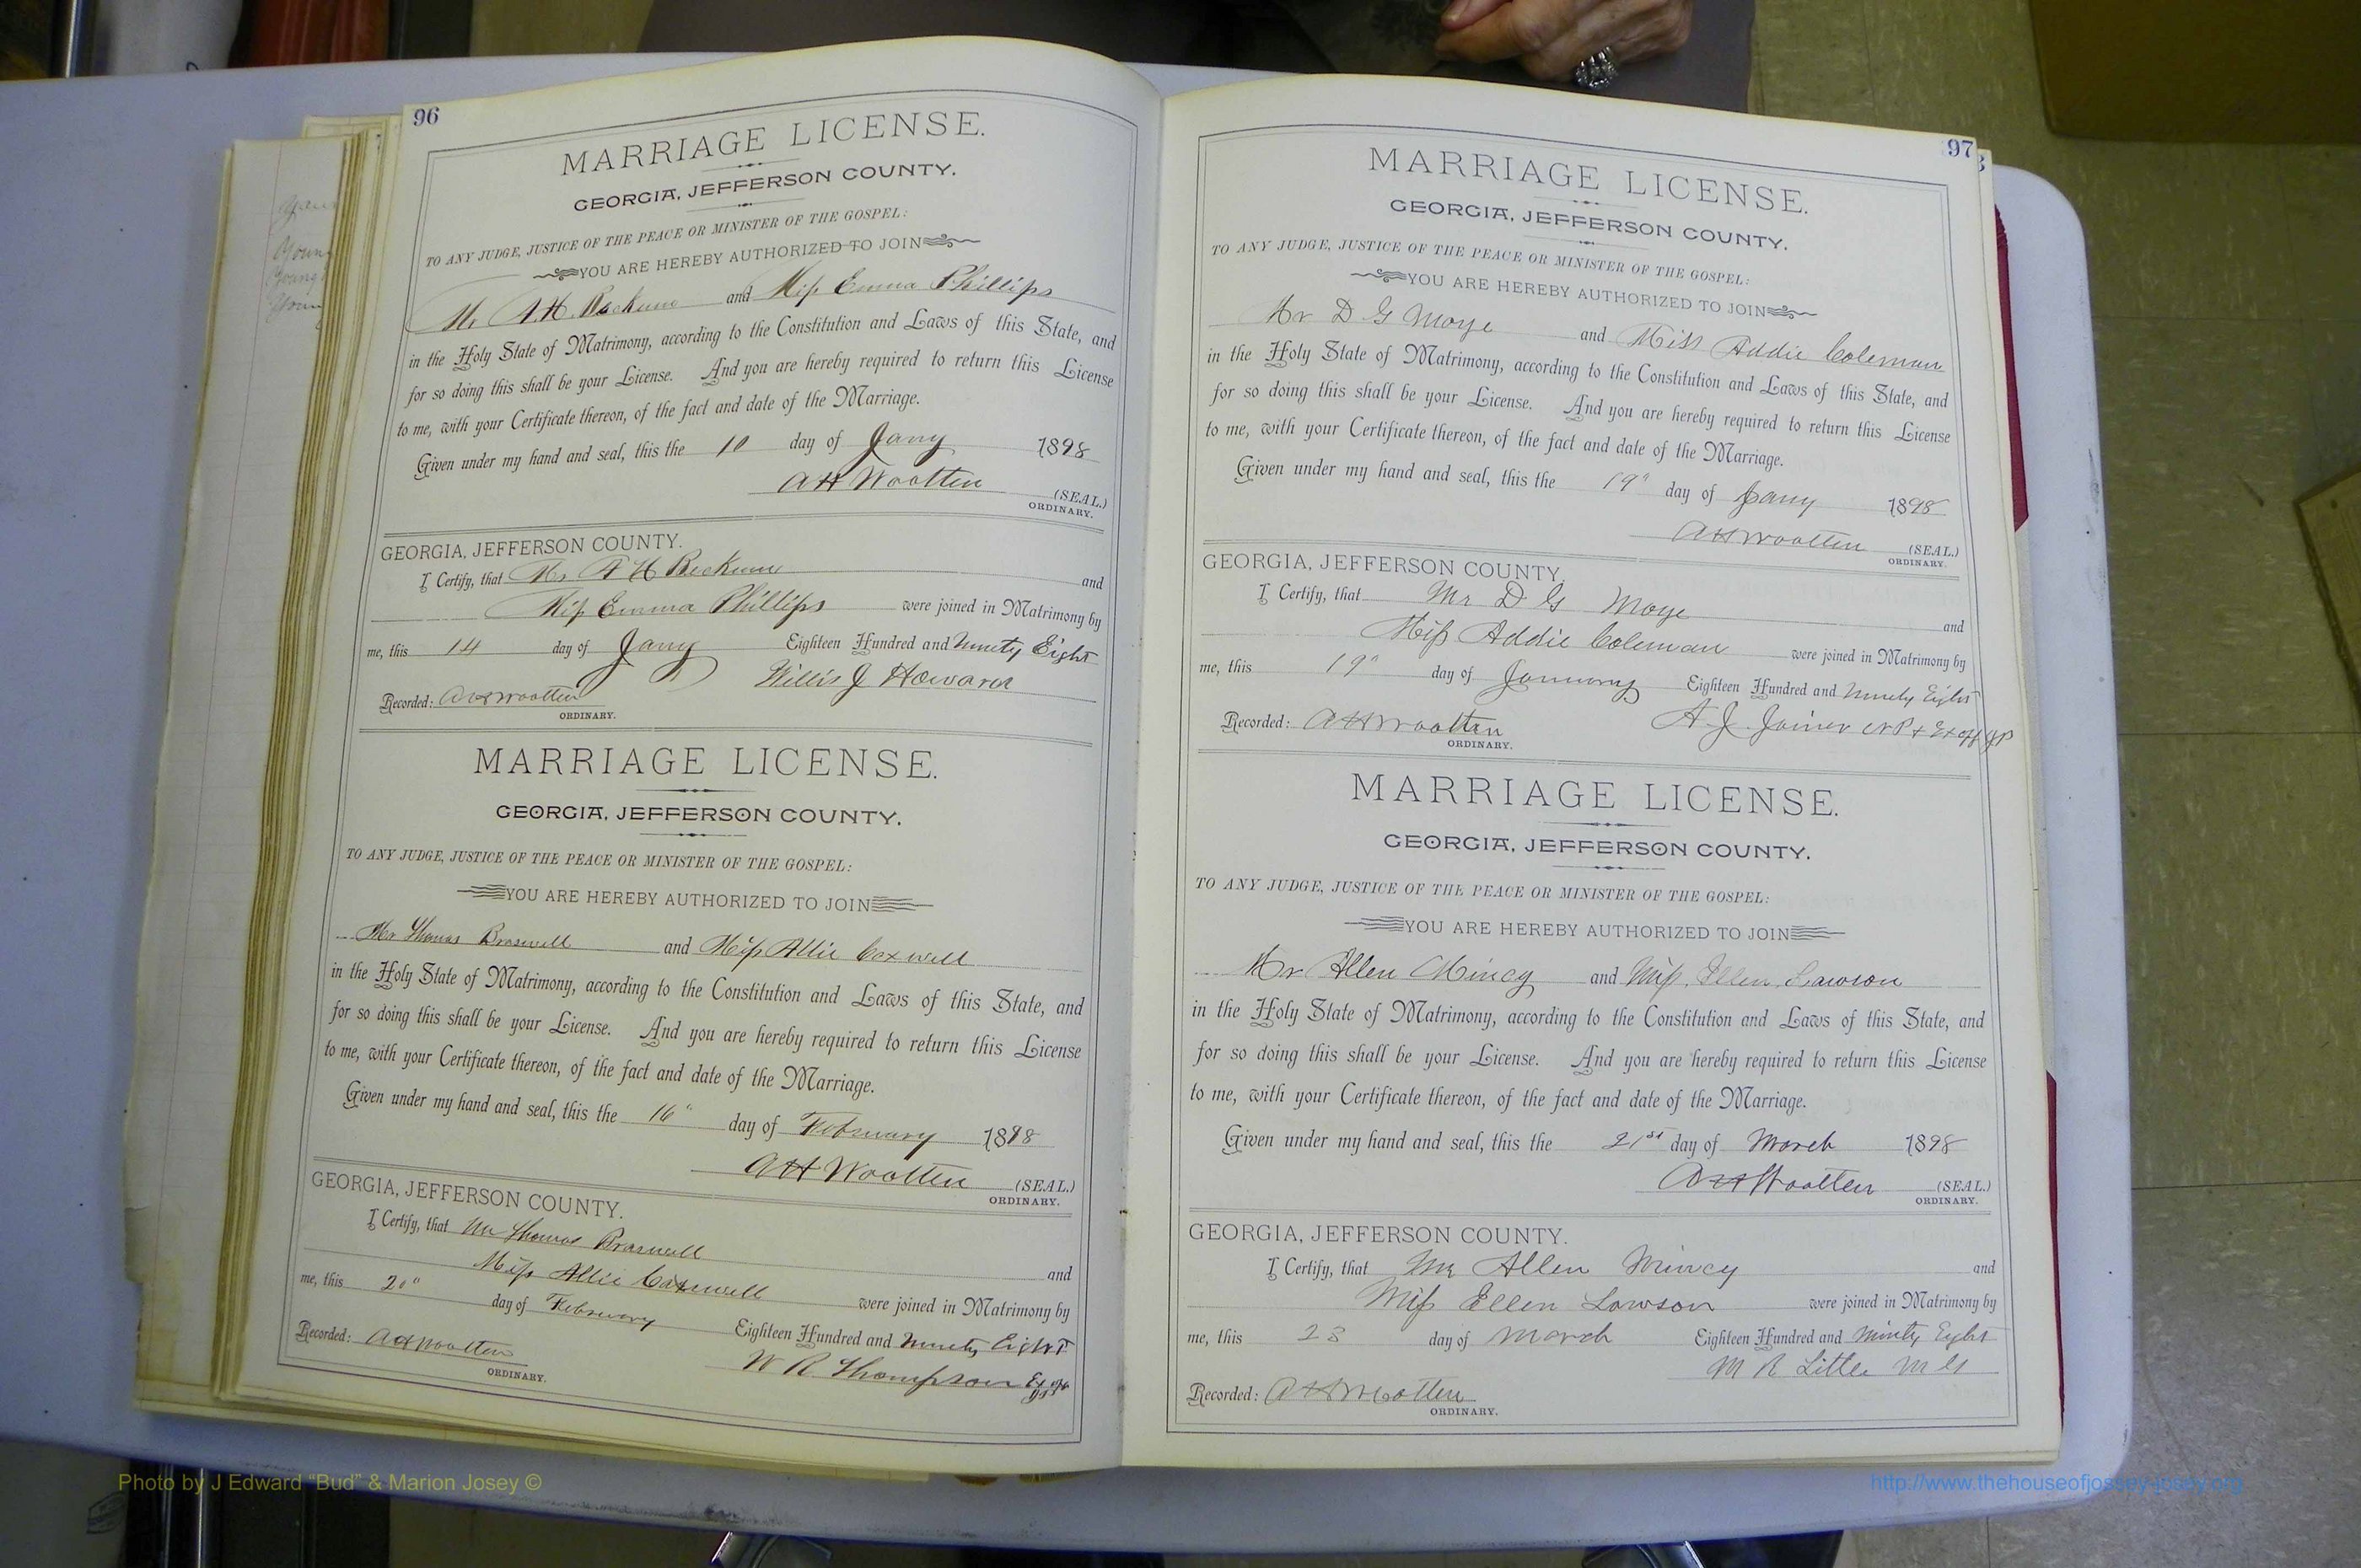 96
MARRIAGE LICENSE.
GEORGIA, JEFFERSON COUNTY.
TO ANY JUDGE, JUSTICE OF THE PEACE OR MINISTER OF THE GOSPEL:
YOU ARE HEREBY AUTHORIZED TO JOIN
Mr A. H. Beckum and Miss Emma Phillips
in the Holy State of Matrimony, according to the Constitution and Laws of this State, and
for so doing this shall be your License. And you are hereby required to return this License
to me, with your Certificate thereon, of the fact and date of the Marriage.
Given under my hand and seal, this the 10 day of Jany 1898
A H Wootten (SEAL.)
ORDINARY.
GEORGIA, JEFFERSON COUNTY.
I Certify, that Mr A H Beckum and
Miss Emma Phillips were joined in Matrimony by
me, this 14 day of Jany Eighteen Hundred and Ninety Eight
Willis J Howard
Recorded: A H Wootten
ORDINARY.
MARRIAGE LICENSE.
GEORGIA, JEFFERSON COUNTY.
TO ANY JUDGE, JUSTICE OF THE PEACE OR MINISTER OF THE GOSPEL:
YOU ARE HEREBY AUTHORIZED TO JOIN
Mr Thomas Braswell and Miss Allie Coxwell
in the Holy State of Matrimony, according to the Constitution and Laws of this State, and
for so doing this shall be your License. And you are hereby required to return this License
to me, with your Certificate thereon, of the fact and date of the Marriage.
Given under my hand and seal, this the 16" day of February 1898
A H Wootten (SEAL.)
ORDINARY.
GEORGIA, JEFFERSON COUNTY.
I Certify, that Mr Thomas Braswell and
Miss Allie Coxwell were joined in Matrimony by
me, this 20" day of February Eighteen Hundred and Ninety Eight
W R. Thompson Ex off
Recorded: A H Wootten
ORDINARY.
97
MARRIAGE LICENSE.
GEORGIA, JEFFERSON COUNTY.
TO ANY JUDGE, JUSTICE OF THE PEACE OR MINISTER OF THE GOSPEL:
YOU ARE HEREBY AUTHORIZED TO JOIN
Mr D G Moye and Miss Addie Coleman
in the Holy State of Matrimony, according to the Constitution and Laws of this State, and
for so doing this shall be your License. And you are hereby required to return this License
to me, with your Certificate thereon, of the fact and date of the Marriage.
Given under my hand and seal, this the 19" day of Jany 1898
A H Wootten (SEAL.)
ORDINARY.
GEORGIA, JEFFERSON COUNTY.
I Certify, that Mr D G Moye and
Miss Addie Coleman were joined in Matrimony by
me, this 19" day of January Eighteen Hundred and Ninety Eight
A. J. Joiner N P & Ex off J P
Recorded: A H Wootten
ORDINARY.
MARRIAGE LICENSE.
GEORGIA, JEFFERSON COUNTY.
TO ANY JUDGE, JUSTICE OF THE PEACE OR MINISTER OF THE GOSPEL:
YOU ARE HEREBY AUTHORIZED TO JOIN
Mr Allen Mincy and Miss Ellen Lawson
in the Holy State of Matrimony, according to the Constitution and Laws of this State, and
for so doing this shall be your License. And you are hereby required to return this License
to me, with your Certificate thereon, of the fact and date of the Marriage.
Given under my hand and seal, this the 21st day of March 1898
A H Wootten (SEAL.)
ORDINARY.
GEORGIA, JEFFERSON COUNTY.
I Certify, that Mr Allen Mincy and
Miss Ellen Lawson were joined in Matrimony by
me, this 23 day of March Eighteen Hundred and Ninety Eight
M R Little M G
Recorded: A H Wootten
ORDINARY.
Photo by J Edward “Bud” & Marion Josey ©
http://www.thehouseofjossey-josey.org